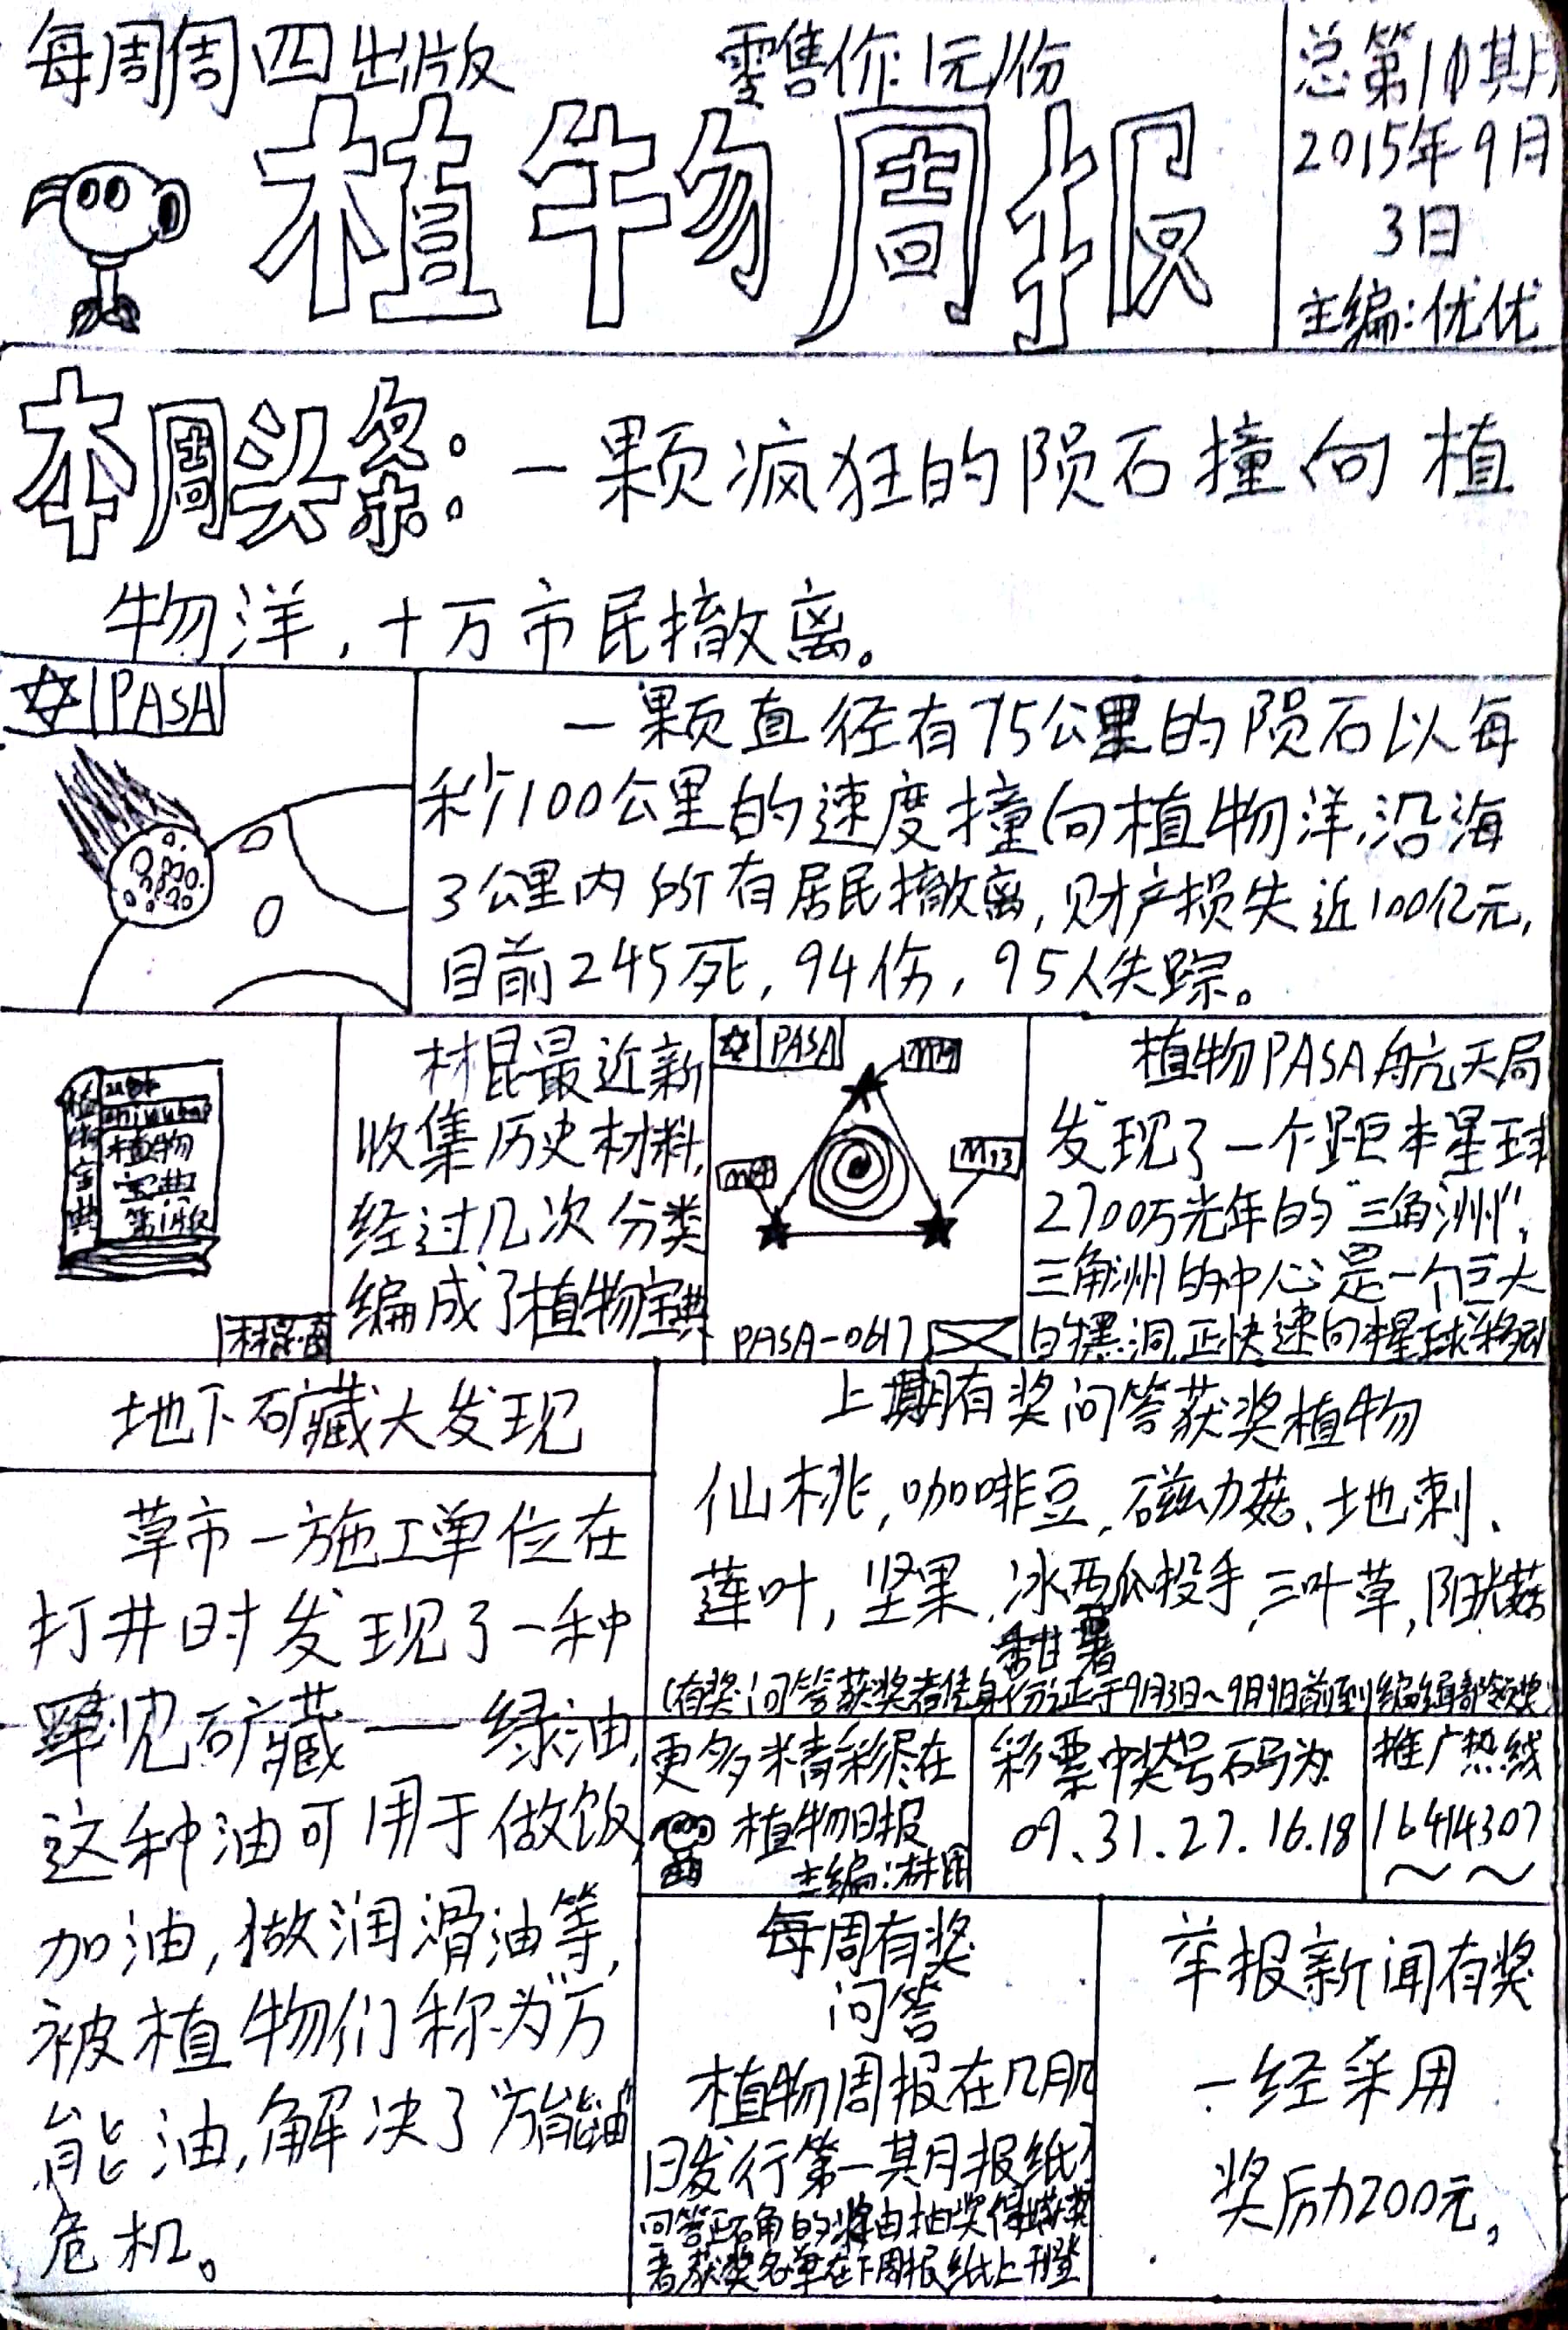 每周周四出版
零售价:1元/份
植物周报
总第10期
2015年9月
3日
主编:优优
本周头条:一颗疯狂的陨石撞向植
物洋,十万市民撤离。
PASA
一颗直径有75公里的陨石以每
秒100公里的速度撞向植物洋,沿海
3公里内所有居民撤离,财产损失近100亿元,
目前245死,94伤,95人失踪。
植物宝典
植物
宝典
第1版
材昆最近新
收集历史材料,
经过几次分类
编成了植物宝典
PASA
M13
PASA-0617
植物PASA航天局
发现了一个距本星球
2700万光年的“三角洲”,
三角洲的中心是一个巨大
的黑洞,正快速向本星球移动
地下矿藏大发现
草市一施工单位在
打井时发现了一种
罕见矿藏——绿油,
这种油可用于做饭,
加油,做润滑油等,
被植物们称为“万
能油,解决了“万能油
危机。
上期有奖问答获奖植物
仙桃,咖啡豆,磁力菇、地刺、
莲叶,坚果,冰西瓜投手,三叶草,阳光菇
甜薯
(有奖问答获奖者凭身份证于9月3日~9月9日前到编辑部领奖)
更多精彩尽在
植物日报
主编:材昆
彩票中奖号码为:
09.31.27.16.18
推广热线
16414307
每周有奖
问答
植物周报在几月几
日发行第一期报纸?
回答正确的将由抽奖得出获奖
者获奖名单在下周报纸上刊登
举报新闻有奖
一经采用
奖励200元。